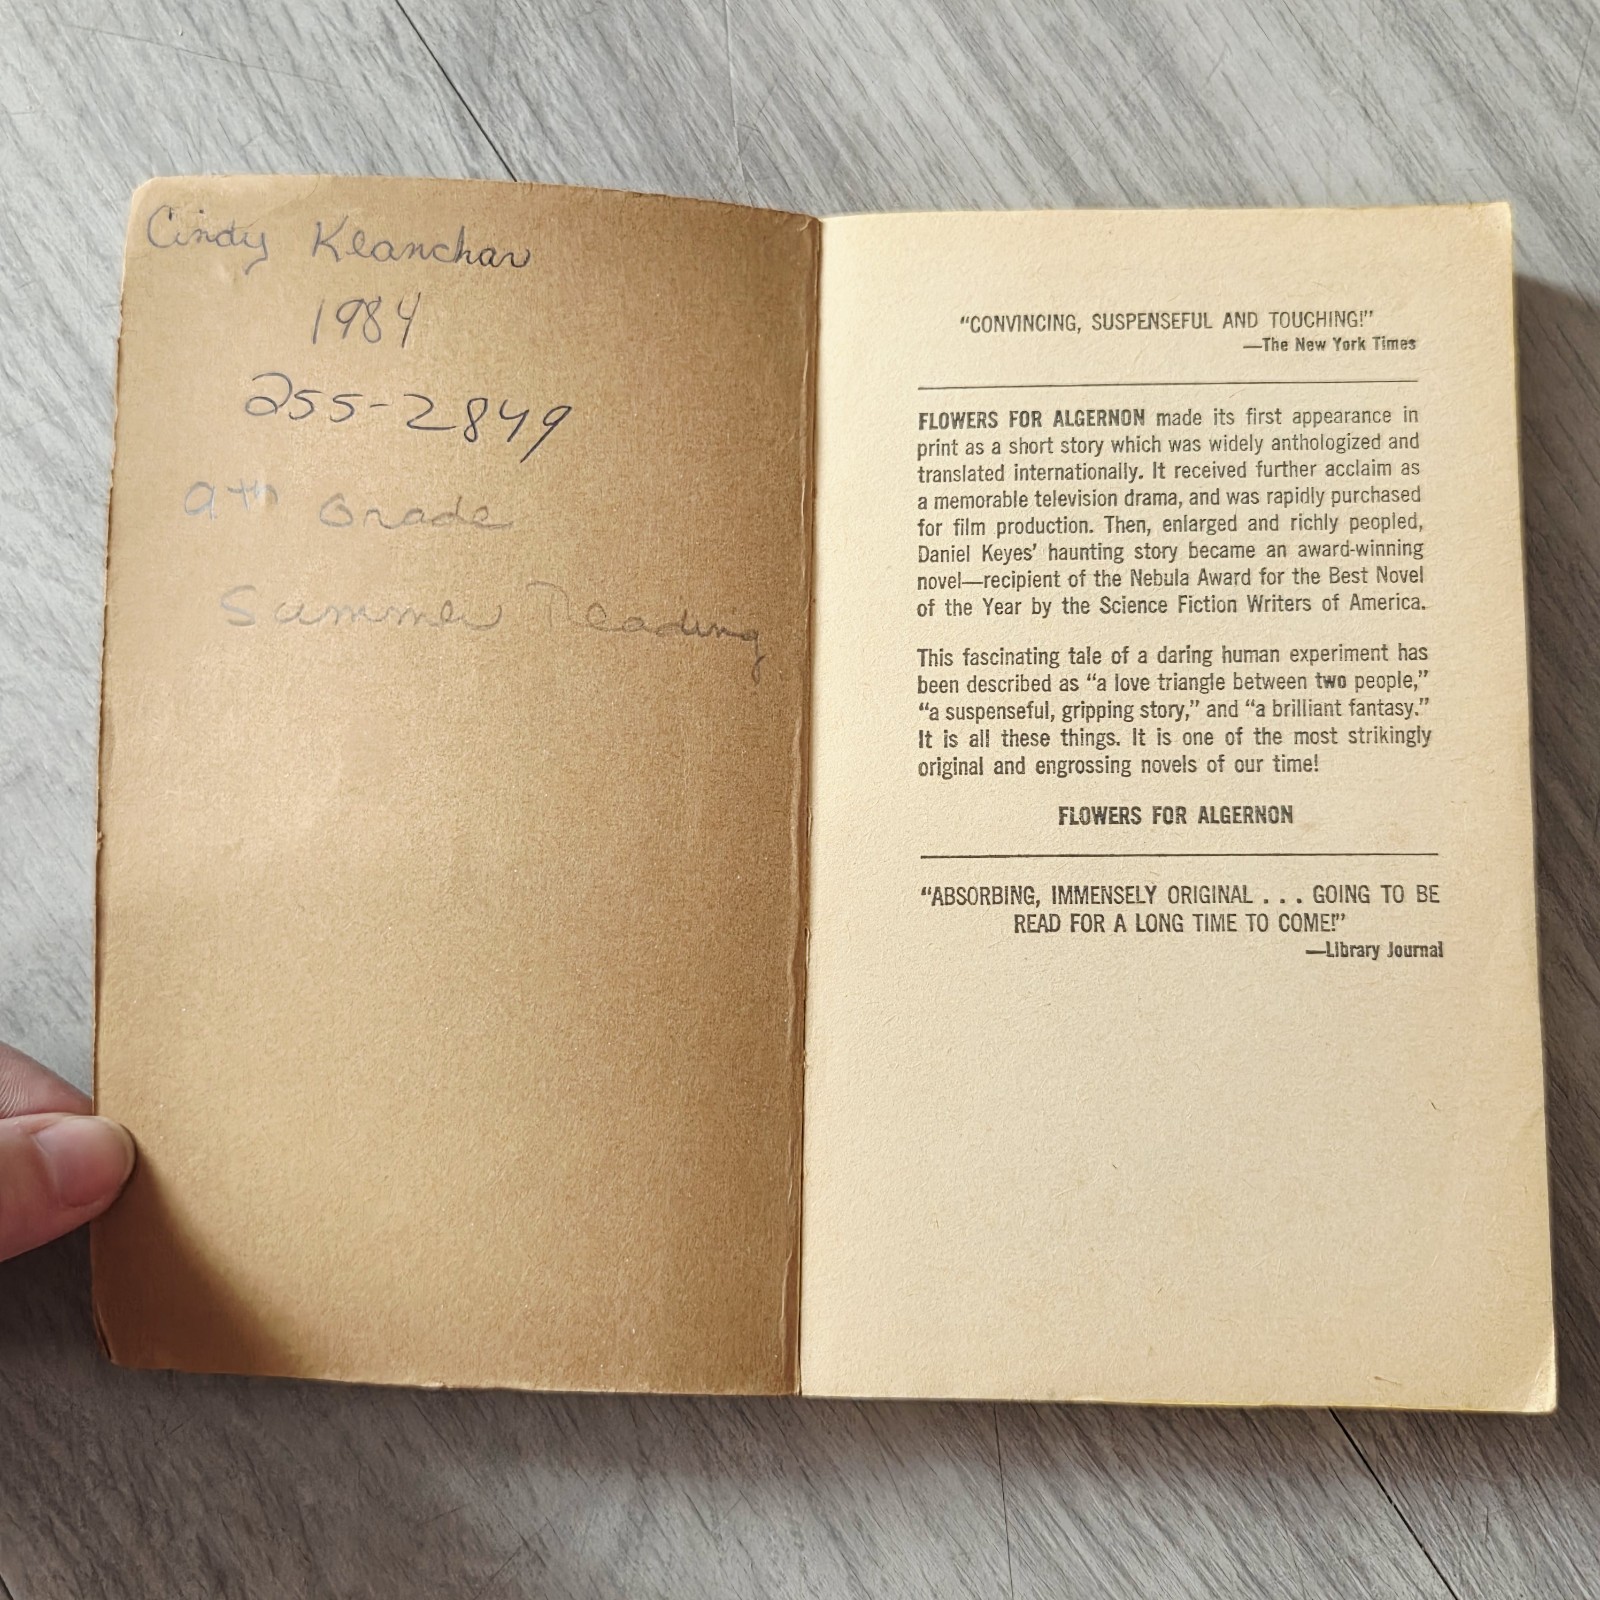 Cindy Klanchar
1984
255-2849
9th Grade
Summer Reading
“CONVINCING, SUSPENSEFUL AND TOUCHING!”
—The New York Times
FLOWERS FOR ALGERNON made its first appearance in
print as a short story which was widely anthologized and
translated internationally. It received further acclaim as
a memorable television drama, and was rapidly purchased
for film production. Then, enlarged and richly peopled,
Daniel Keyes’ haunting story became an award-winning
novel—recipient of the Nebula Award for the Best Novel
of the Year by the Science Fiction Writers of America.
This fascinating tale of a daring human experiment has
been described as “a love triangle between two people,”
“a suspenseful, gripping story,” and “a brilliant fantasy.”
It is all these things. It is one of the most strikingly
original and engrossing novels of our time!
FLOWERS FOR ALGERNON
“ABSORBING, IMMENSELY ORIGINAL . . . GOING TO BE
READ FOR A LONG TIME TO COME!”
—Library Journal